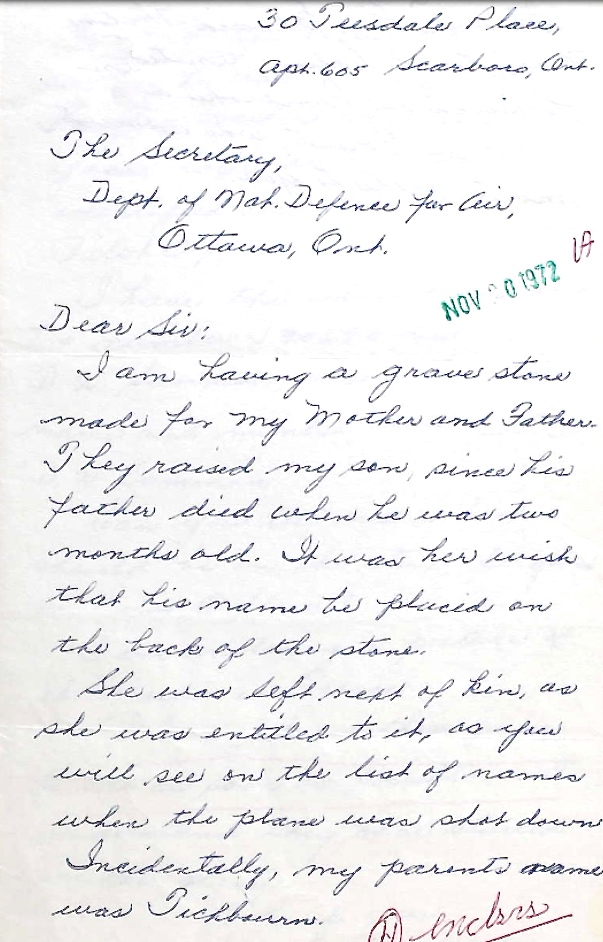 30 Teesdale Place,
Apt. 605 Scarboro, Ont.
The Secretary,
Dept. of Nat. Defence for Air,
Ottawa, Ont.
NOV 20 1972
Dear Sir:
I am having a grave stone
made for my Mother and Father.
They raised my son, since his
father died when he was two
months old. It was her wish
that his name be placed on
the back of the stone.
She was left next of kin, as
she was entitled to it, as you
will see on the list of names
when the plane was shot down
Incidentally, my parents name
was Tichbourn.
enclsrs